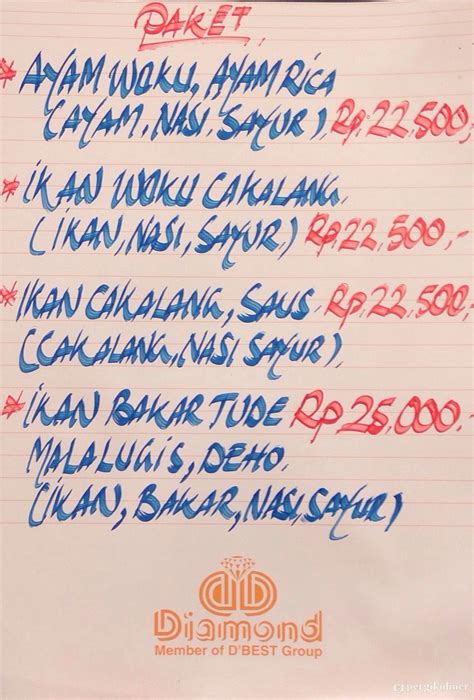 PAKET
* AYAM WOKU, AYAM RICA
(AYAM, NASI, SAYUR). Rp. 22,500,-
* IKAN WOKU CAKALANG.
(IKAN, NASI, SAYUR) Rp. 22,500,-
* IKAN CAKALANG, SAUS. Rp. 22,500,-
(CAKALANG, NASI SAYUR).
* IKAN BAKAR TUDE Rp 25,000.-
MALALUGIS, DEHO.
(IKAN, BAKAR, NASI, SAYUR)
Diamond
Member of D'BEST Group
pergikuliner